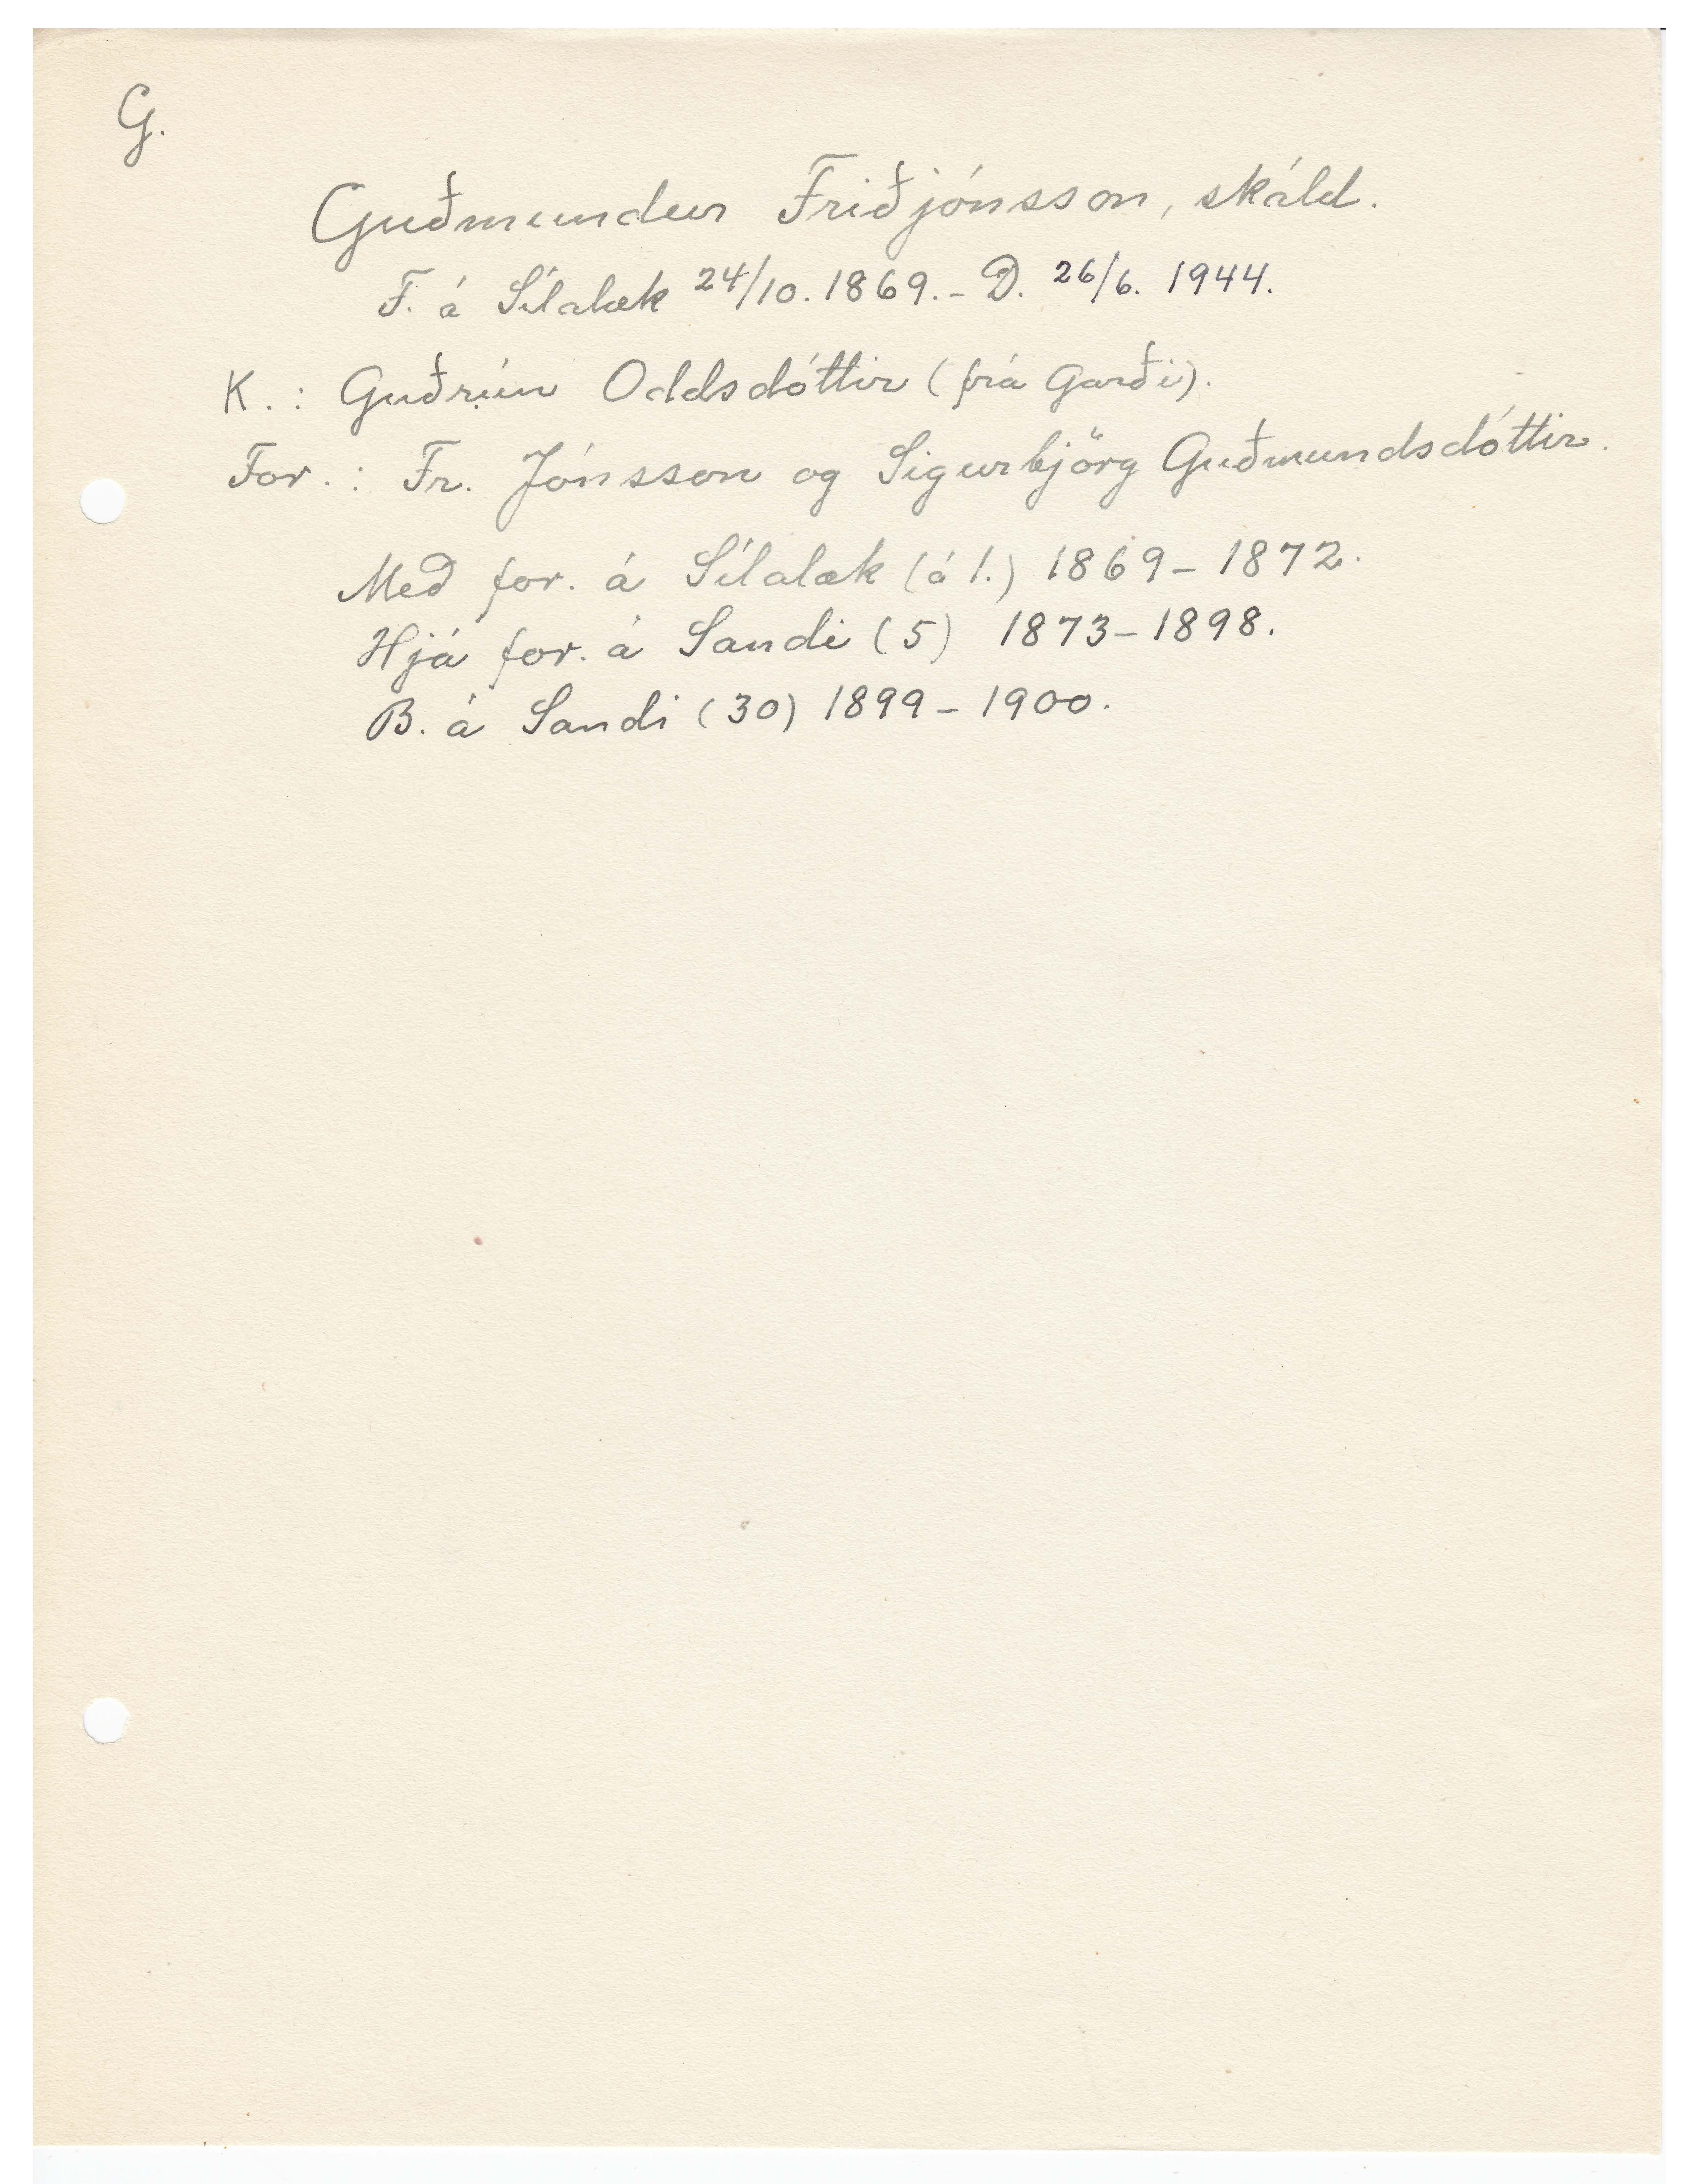 G.
Guðmundur Friðjónsson, skáld.
F. á Sílalæk 24/10. 1869. - D. 26/6. 1944.
K. : Guðrún Oddsdóttir (frá Garði).
For. : Fr. Jónsson og Sigurbjörg Guðmundsdóttir.
Með for. á Sílalæk (á 1.) 1869 - 1872.
Hjá for. á Sandi (5) 1873 - 1898.
B. á Sandi (30) 1899 - 1900.